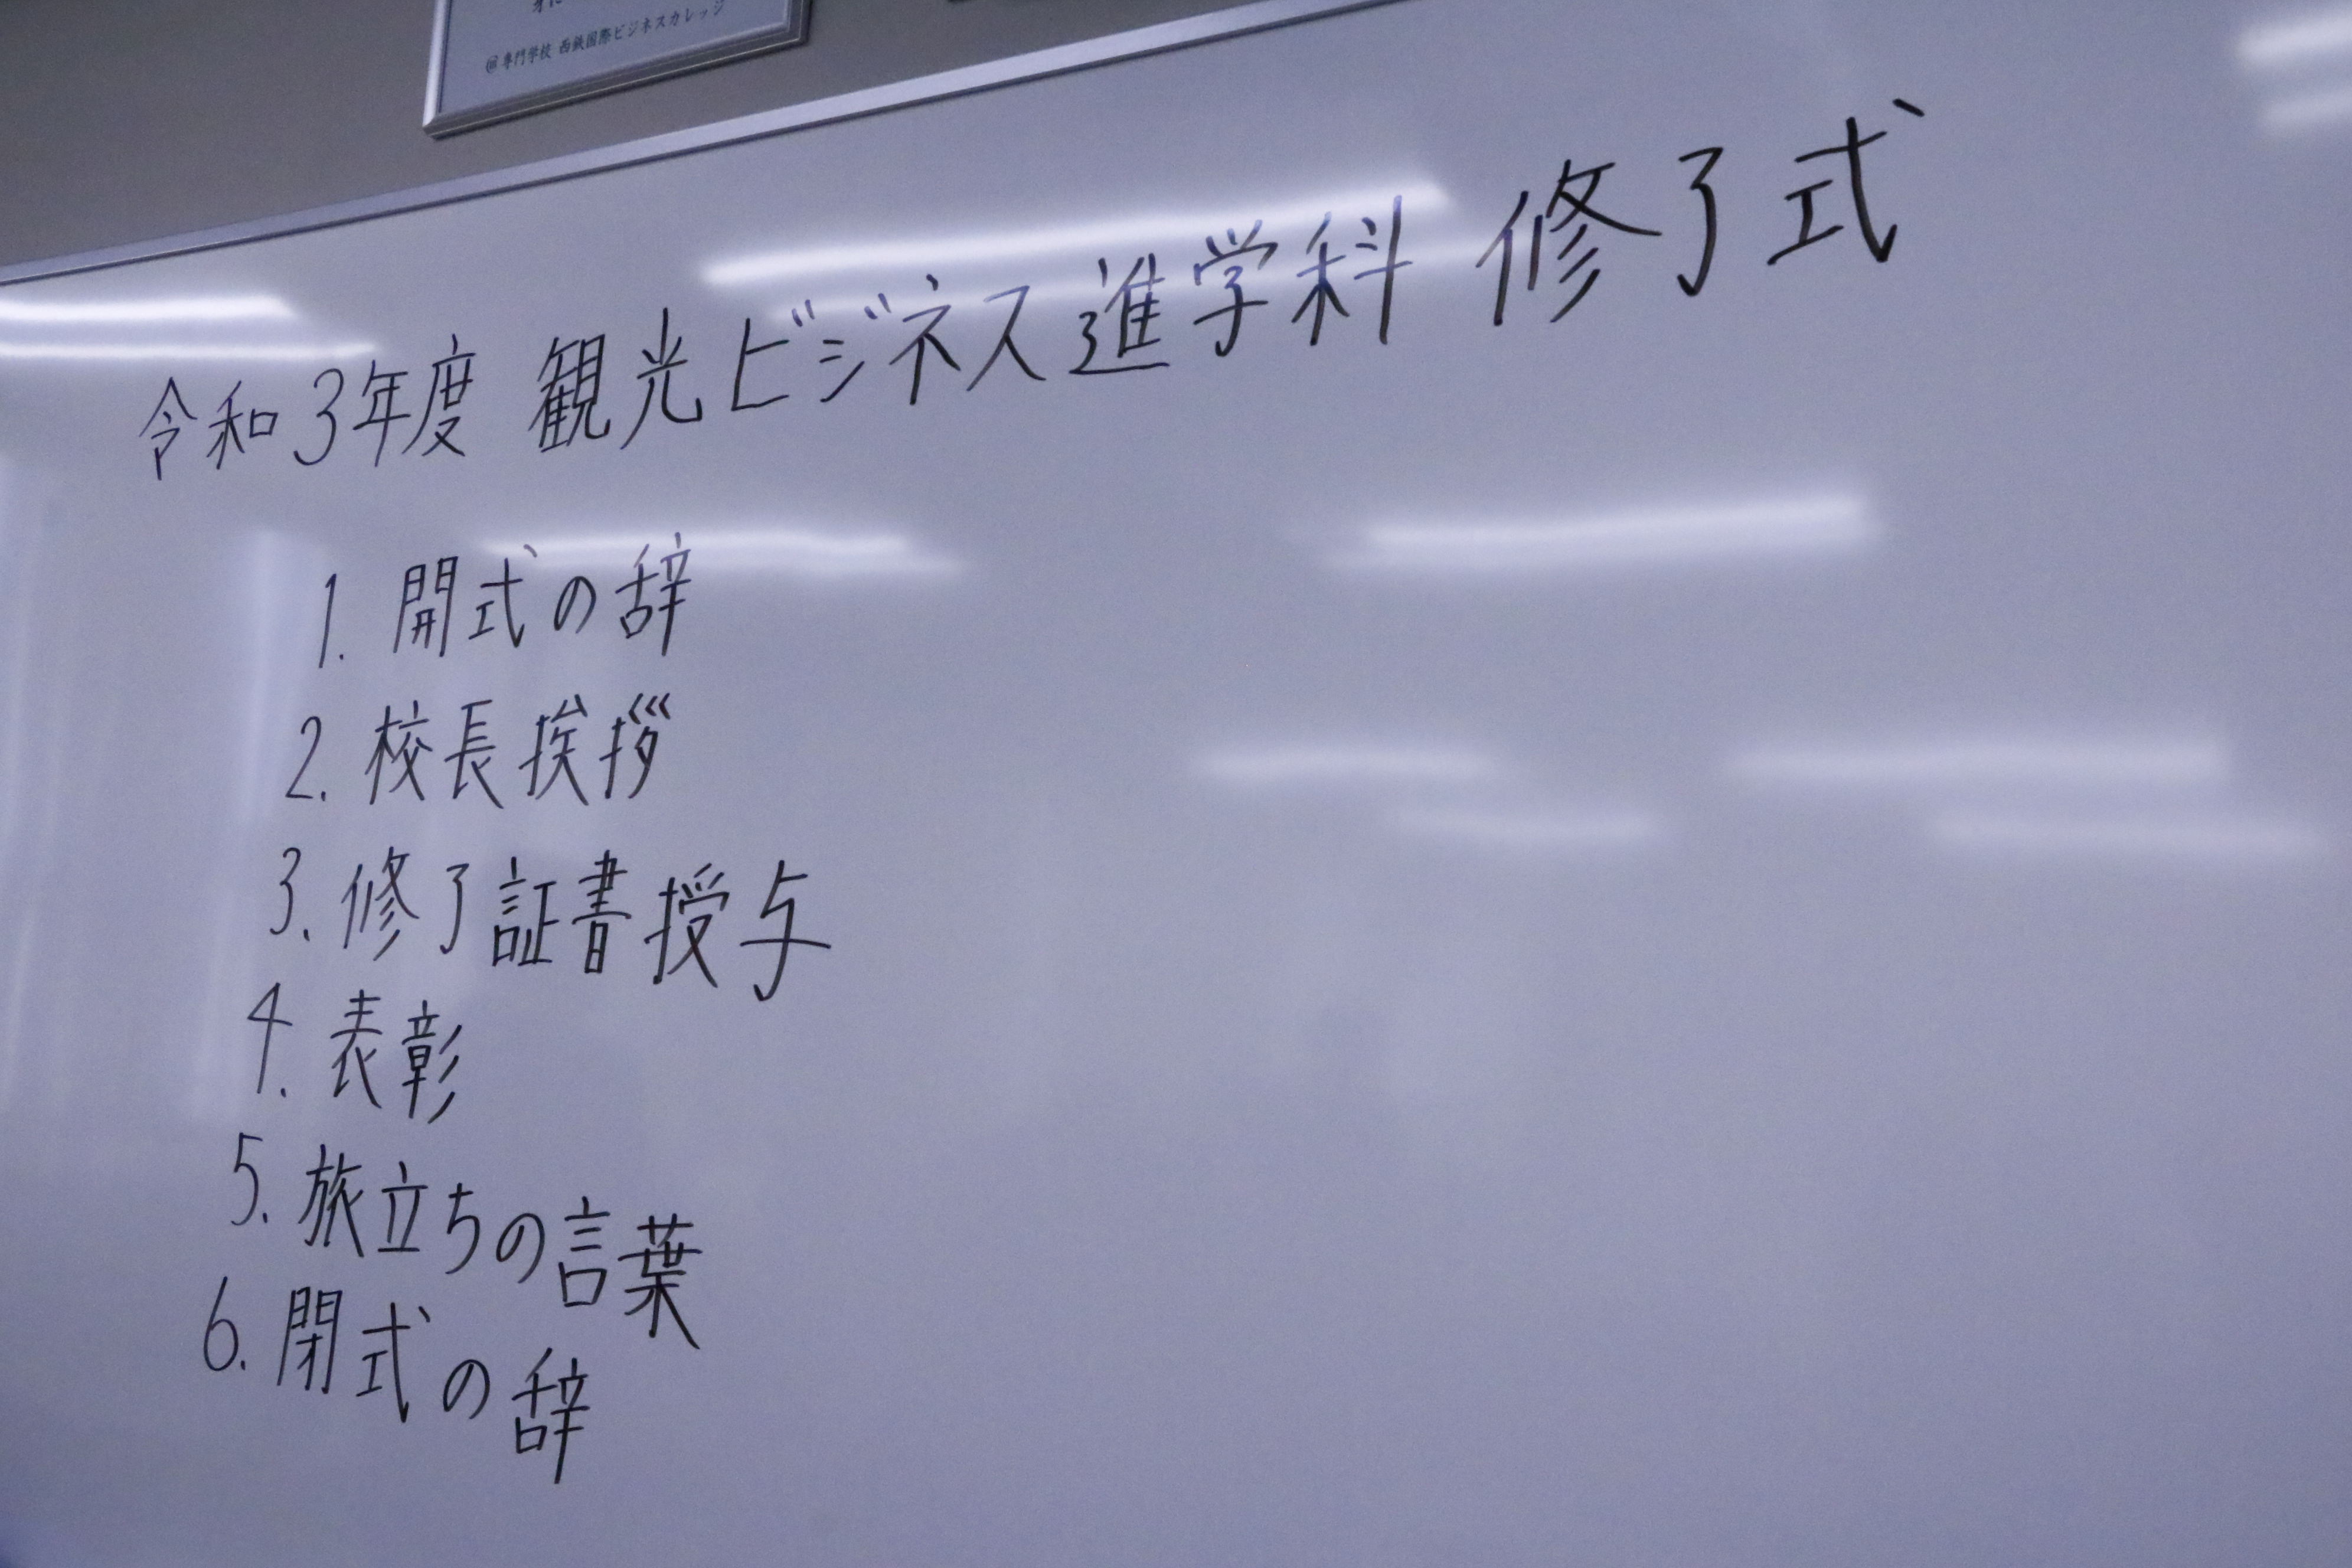 専門学校 西鉄国際ビジネスカレッジ
令和3年度 観光ビジネス進学科 修了式
1. 開式の辞
2. 校長挨拶
3. 修了証書授与
4. 表彰
5. 旅立ちの言葉
6. 閉式の辞